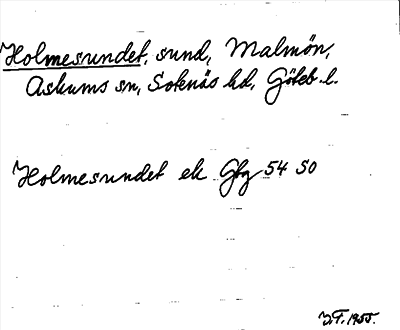 Holmesundet, sund, Malmön,
Askums sn, Sotenäs hd, Göteb. l.
Holmesundet ek Gbg 54 SO
1955.